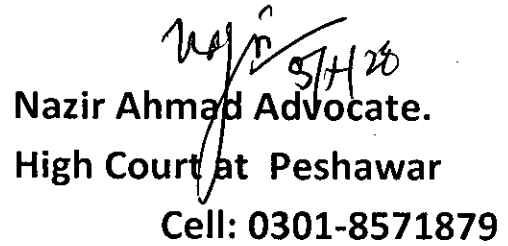 Nazir Ahmad Advocate.
High Court at Peshawar
Cell: 0301-8571879